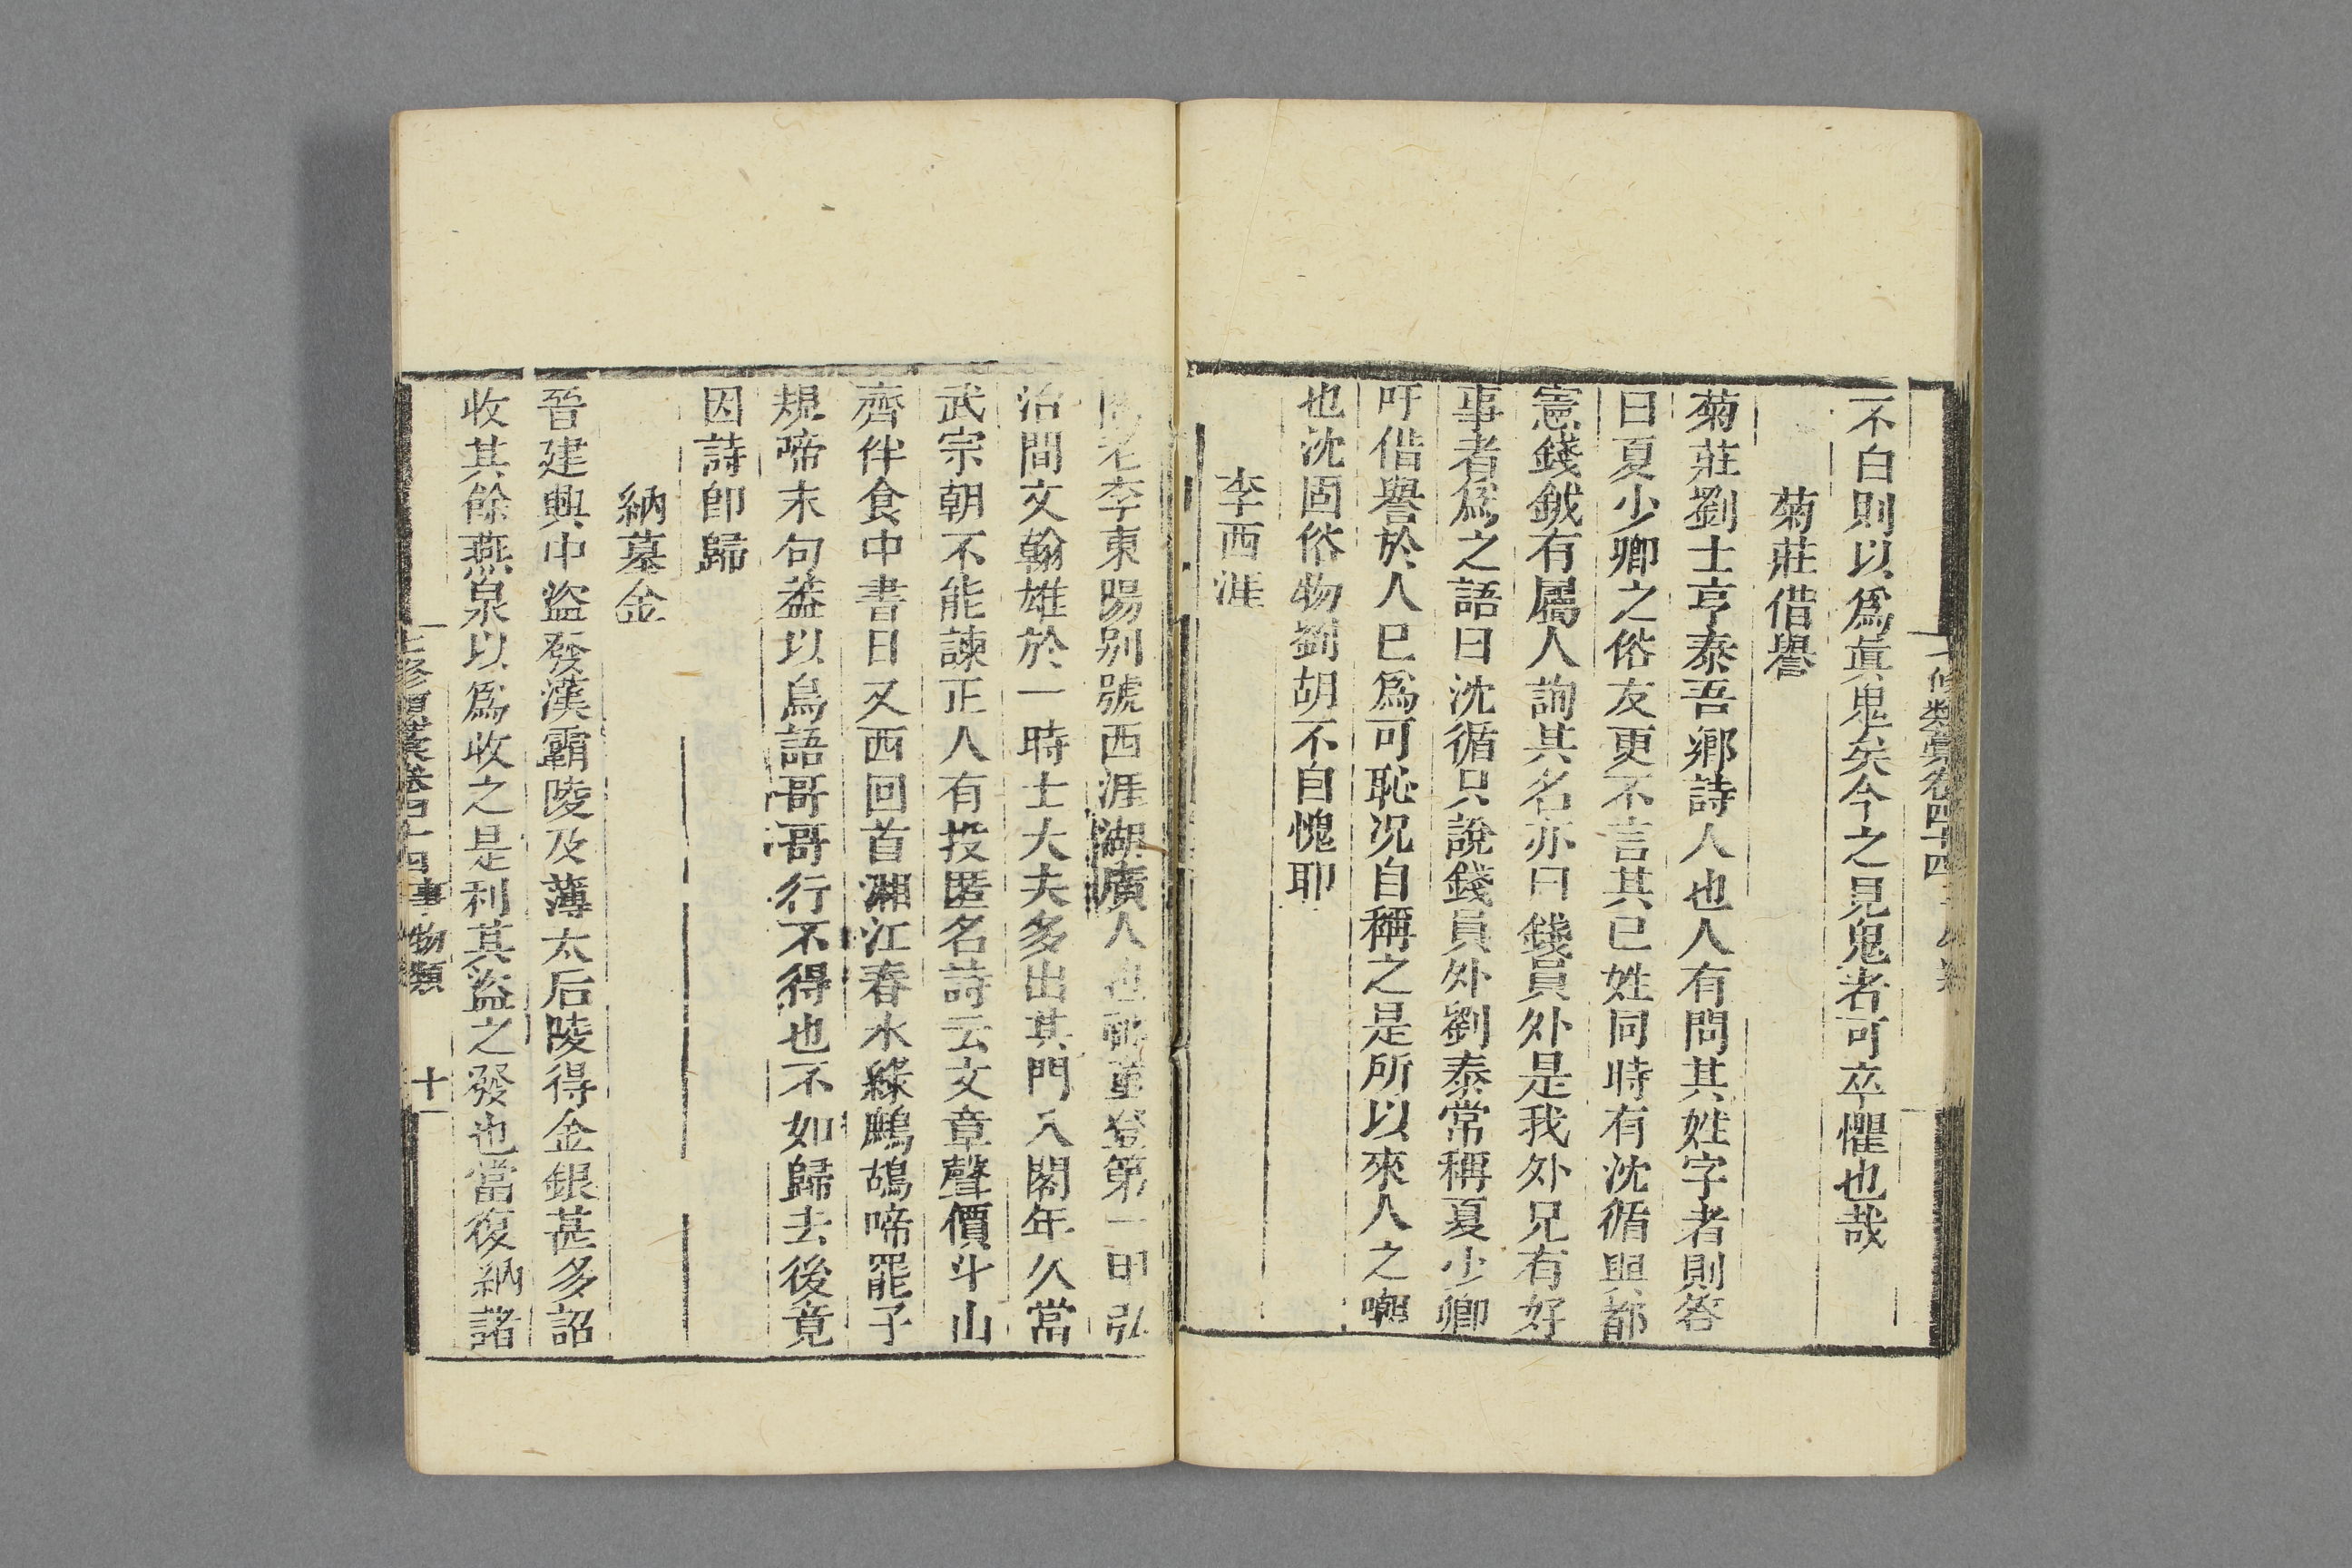 不白則以爲眞鬼矣今之見鬼者可卒懼也哉
菊莊借譽
菊莊劉士亨泰吾鄉詩人也人有問其姓字者則答
曰夏少卿之俗友更不言其已姓同時有沈循與都
憲錢鉞有屬人詢其名亦曰錢員外是我外兄有好
事者爲之語曰沈循只說錢員外劉泰常稱夏少卿
吁借譽於人已爲可恥况自稱之是所以來人之嘲
也沈固俗物劉胡不自愧耶
李西涯
老李東陽别號西涯湖廣人也童登第一甲弘
治間文翰雄於一時士大夫多出其門入閣年久當
武宗朝不能諫正人有投匿名詩云文章聲價斗山
齊伴食中書日又西回首湘江春水綠鷓鴣啼罷子
規啼末句葢以鳥語哥哥行不得也不如歸去後竟
因詩卽歸
納墓金
晉建興中盜發漢霸陵及薄太后陵得金銀甚多詔
收其餘燕泉以爲收之是利其盜之發也當復納諸
七修類稾卷四十四 事物類 十